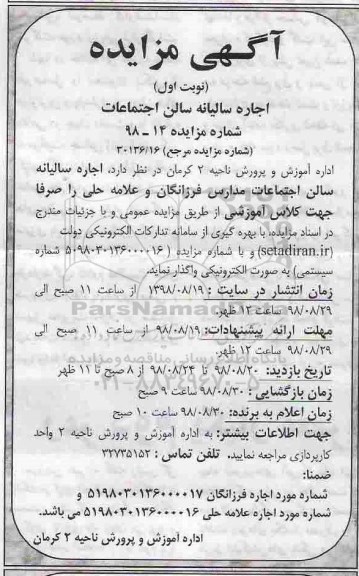 آگهی مزایده
(نوبت اول)
اجاره سالیانه سالن اجتماعات
شماره مزایده ۱۴ ــ ۹۸
(شماره مزایده مرجع ۳۰۱۳۶/۱۶)
اداره آموزش و پرورش ناحیه ۲ کرمان در نظر دارد، اجاره سالیانه
سالن اجتماعات مدارس فرزانگان و علامه حلی را صرفا
جهت کلاس آموزشی از طریق مزایده عمومی و با جزئیات مندرج
در اسناد مزایده، با بهره گیری از سامانه تدارکات الکترونیکی دولت
(setadiran.ir) و با شماره مزایده (۵۰۹۸۰۳۰۱۳۶۰۰۰۰۱۶ شماره
سیستمی) به صورت الکترونیکی واگذار نماید.
زمان انتشار در سایت : ۱۳۹۸/۰۸/۱۹ از ساعت ۱۱ صبح الی
۹۸/۰۸/۲۹ ساعت ۱۲ ظهر.
مهلت ارائه پیشنهادات: ۹۸/۰۸/۱۹ از ساعت ۱۱ صبح الی
۹۸/۰۸/۲۹ ساعت ۱۲ ظهر.
تاریخ بازدید: ۹۸/۰۸/۲۰ تا ۹۸/۰۸/۲۴ از ۸ صبح تا ۱۱ ظهر
زمان بازگشایی : ۹۸/۰۸/۳۰ ساعت ۹ صبح
زمان اعلام به برنده: ۹۸/۰۸/۳۰ ساعت ۱۰ صبح
جهت اطلاعات بیشتر: به اداره آموزش و پرورش ناحیه ۲ واحد
کارپردازی مراجعه نمایید. تلفن تماس : ۳۲۷۳۵۱۵۲
ضمنا:
شماره مورد اجاره فرزانگان ۵۱۹۸۰۳۰۱۳۶۰۰۰۰۱۷ و
شماره مورد اجاره علامه حلی ۵۱۹۸۰۳۰۱۳۶۰۰۰۰۱۶ می باشد.
اداره آموزش و پرورش ناحیه ۲ کرمان